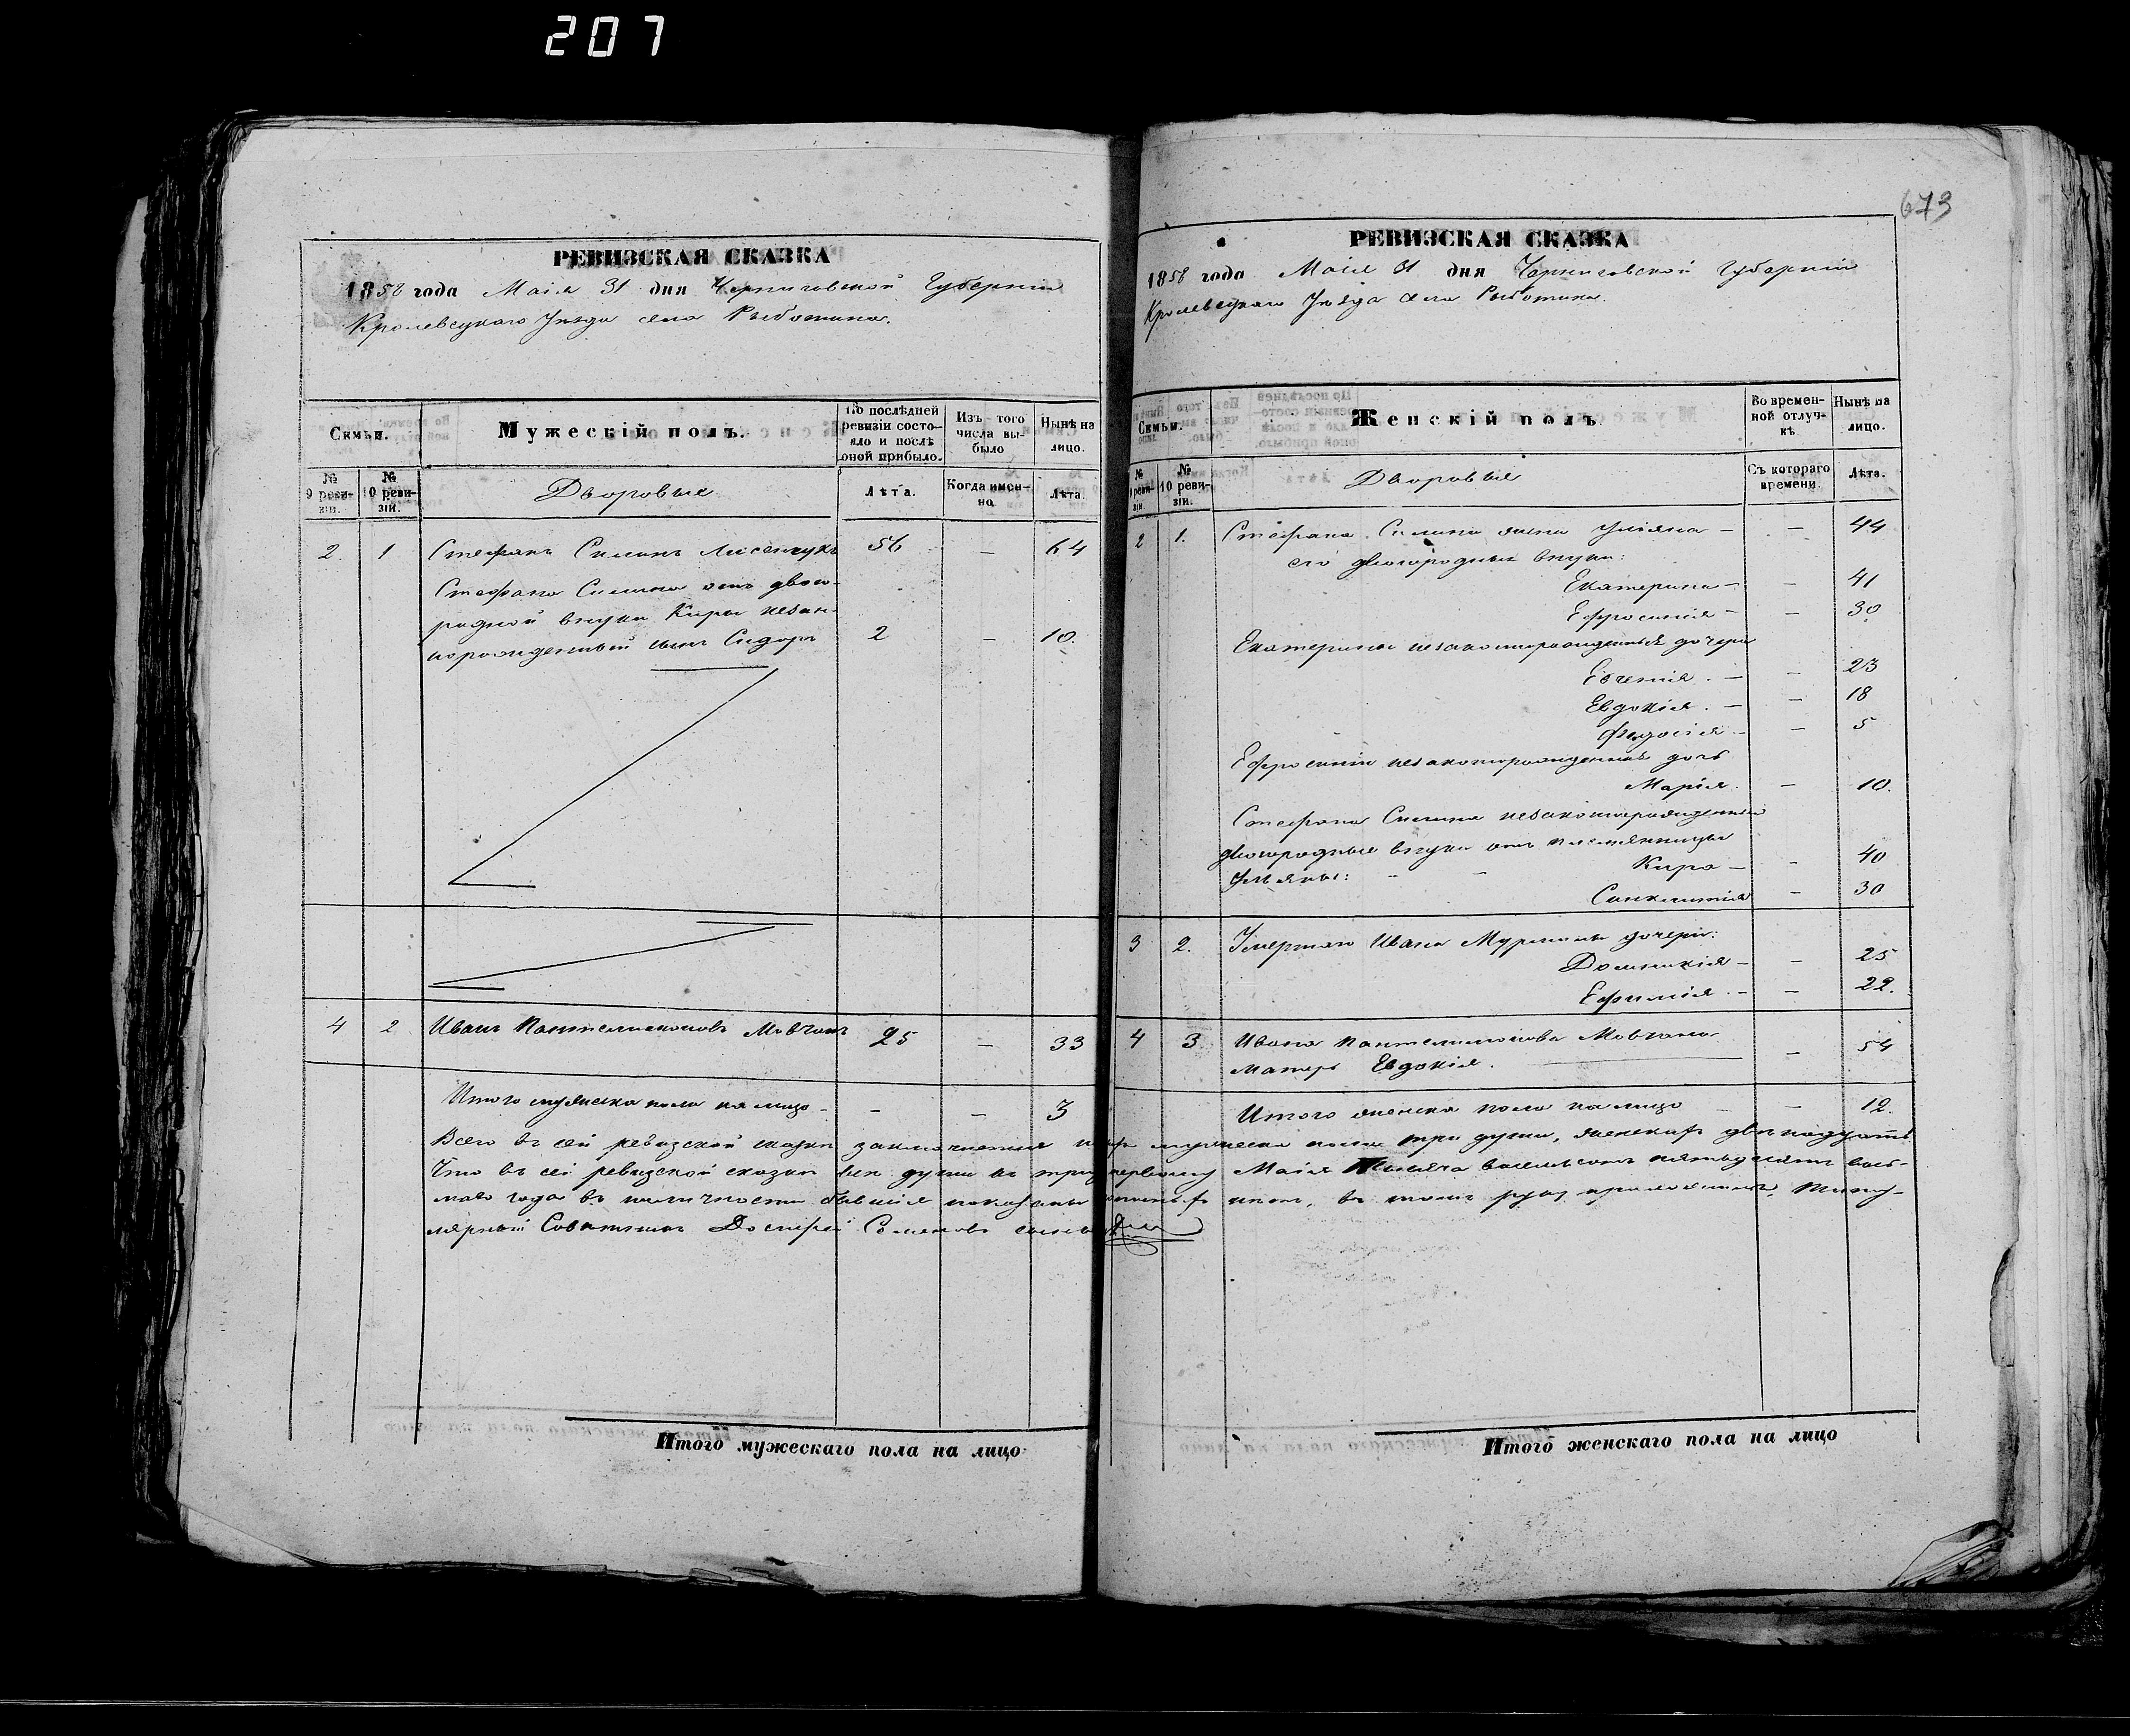 207
673
РЕВИЗСКАЯ СКАЗКА
1858 года Маія 31 дня Черниговской Губерніи
Кролевецкаго Уѣзда села Рыботина.
Семьи.
Мужескій полъ.
По послѣдней ревизіи состояло и послѣ оной прибыло.
Изъ того числа выбыло
Нынѣ на лицо.
№ 9 ревизіи.
№ 10 ревизіи.
Дворовые
Лѣта.
Когда именно.
Лѣта.
2. 1 Стефанъ Силинъ Лисенчукъ 56 — 64
Стефана Силина отъ двою-
родной внуки Киры незак-
норожденный сынъ Сидоръ 2 — 10.
4 2 Иванъ Пантелимоновъ Мовчанъ 25 — 33
Итого мужеска пола на лицо - - — 3
Итого мужескаго пола на лицо
РЕВИЗСКАЯ СКАЗКА
1858 года Маія 31 дня Черниговской Губерніи
Кролевецкаго Уѣзда села Рыботина.
Семьи.
Женскій полъ.
Во временной отлучкѣ.
Нынѣ на лицо.
№ 9 ревизіи.
№ 10 ревизіи.
Дворовые
Съ котораго времени.
Лѣта.
2 1. Стефана Силина жена Уліяна — — 44
его двоюродные внуки:
Екатерина — — 41
Ефросинія — — 30
Екатерины незаконнорожденные дочери
— — 23
Евдокія. — — 18
Феодосія — — 5
Ефросиніи незаконнорожденная дочь
Марія. — 10.
Стефана Силина незаконнорожденныя
двоюродные внуки отъ племянницы
Ульяны: - - Кира — - 40
Синклитія — 30
3 2. Умершаго Ивана дочери:
Домникія — — 25
Ефимія. — — 22.
4 3 Ивана Пантелимонова Мовчана
матерь Евдокія. — 54
Итого женска пола на лицо — 12.
Всего въ сей ревизской сказкѣ заключается мужеска пола три души, женскаго двѣнадцать
Что въ сей ревизской сказкѣ всѣ души по тридцать первому Маія тысяча восемьсотъ пятьдесятъ вось-
маго года въ наличности бывшія показаны и нѣтъ, въ томъ руку приложилъ, Титу-
лярный Совѣтникъ Семеновъ сынъ
Итого женскаго пола на лицо